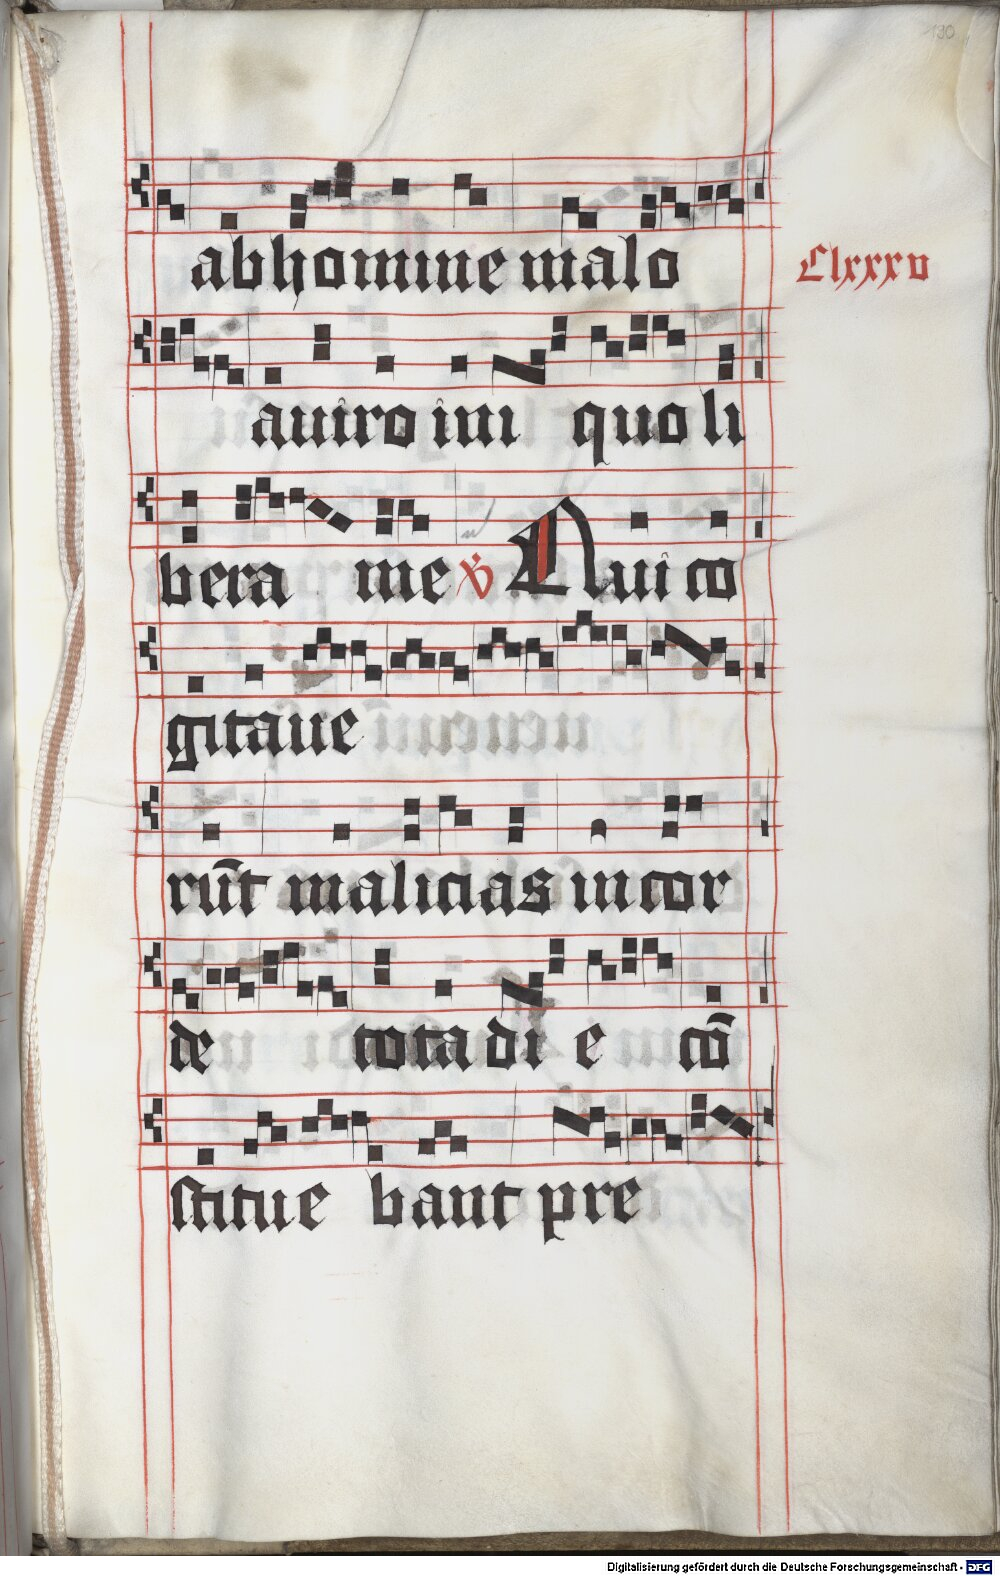 130
ab homine malo
Clxxxv
a viro ini quo li
bera me ℣ Qui co
gitaue
rūt malicias in cor
de tota di e cō
stitue bant pre
Digitalisierung gefördert durch die Deutsche Forschungsgemeinschaft - DFG